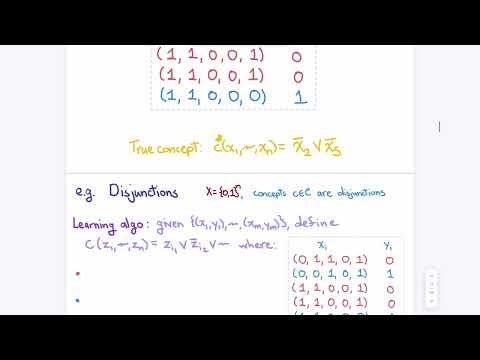 (1, 1, 0, 0, 1) 0
(1, 1, 0, 0, 1) 0
(1, 1, 0, 0, 0) 1
True concept: c*(x₁,~,xₙ) = x̄₂ ∨ x̄₅
e.g. Disjunctions X={0,1}ⁿ, concepts c∈C are disjunctions
Learning algo: given {(x₁,y₁),~,(xₘ,yₘ)}, define
c(z₁,~,zₙ) = z_i₁ ∨ z̄_i₂ ∨ ~ where:
xᵢ yᵢ
(0, 1, 1, 0, 1) 0
(0, 0, 1, 0, 1) 1
(1, 1, 0, 0, 1) 0
(1, 1, 0, 0, 1) 0